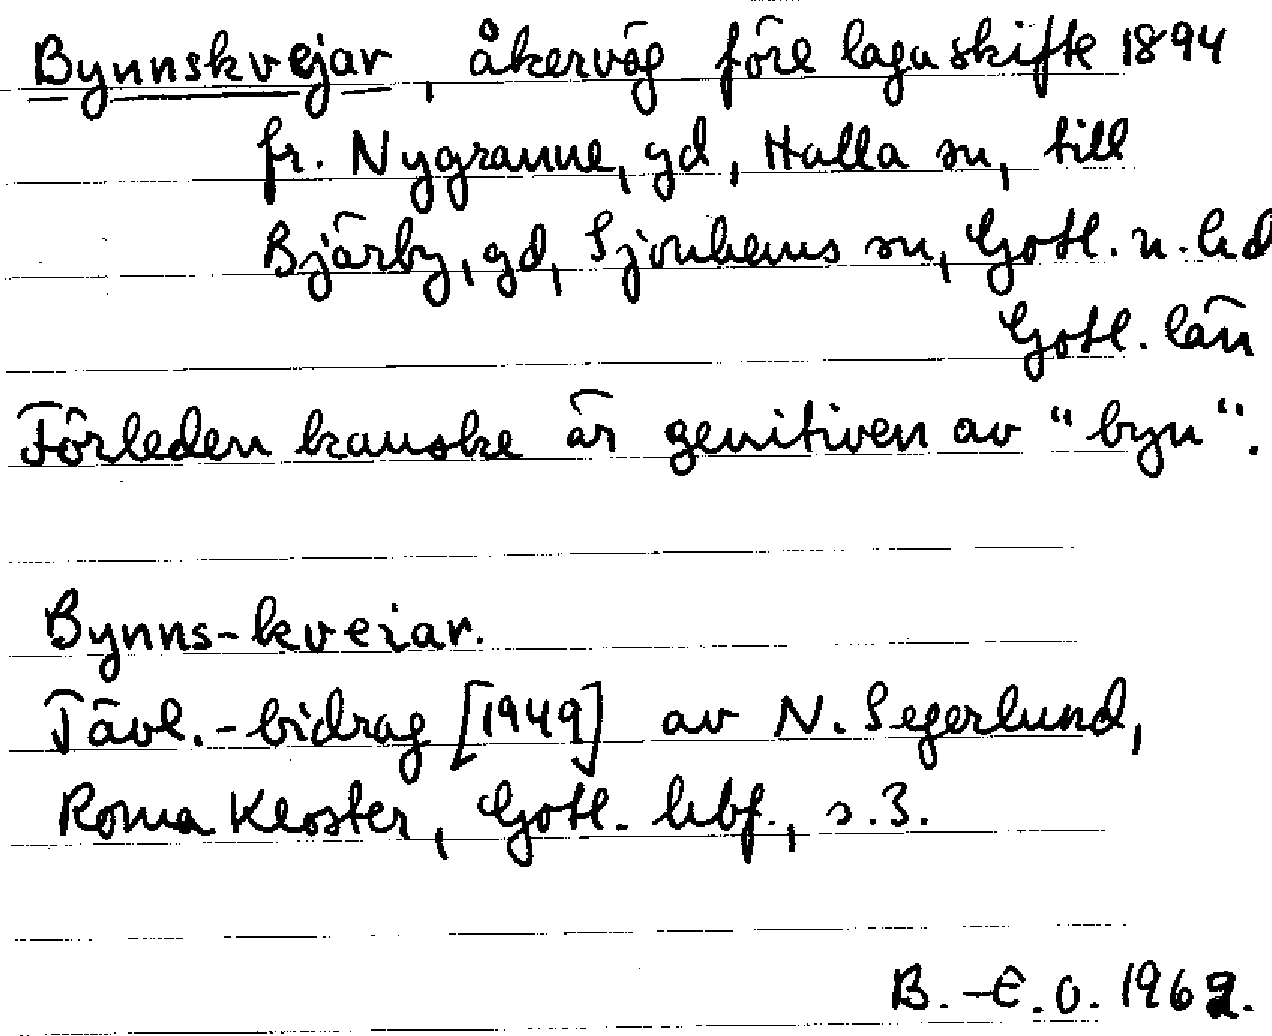 Bynnskvejar, åkerväg före laga skifte 1894
fr. Nygranne, gd, Halla sn, till
Bjärby, gd, Sjonhems sn, Gotl. n. hd
Gotl. län
Förleden kanske är genitiven av "byn".
Bynns-kveiar.
Tävl.-bidrag [1949] av N. Segerlund,
Roma Kloster, Gotl. hbf., s.3.
B.-E.O. 1962.